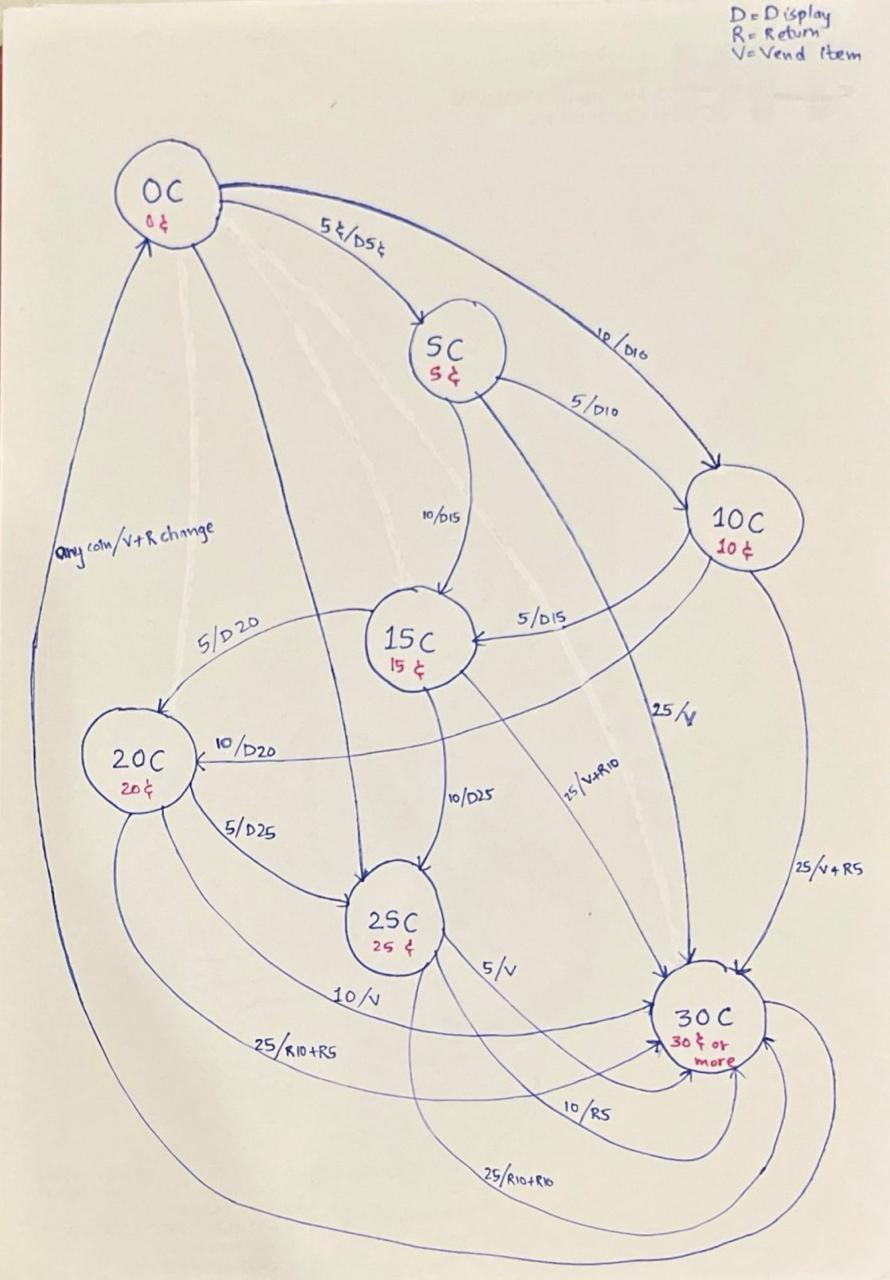 D = Display
R = Return
V = Vend Item
0C
0¢
5¢/D5¢
10/D10
5C
5¢
5/D10
10C
10¢
10/D15
any coin/V+R change
5/D15
15C
15¢
5/D20
25/V
10/D20
20C
20¢
25/V+R10
10/D25
5/D25
25/V+R5
25C
25¢
5/V
10/V
30C
30¢ or
more
25/R10+R5
10/R5
25/R10+R10